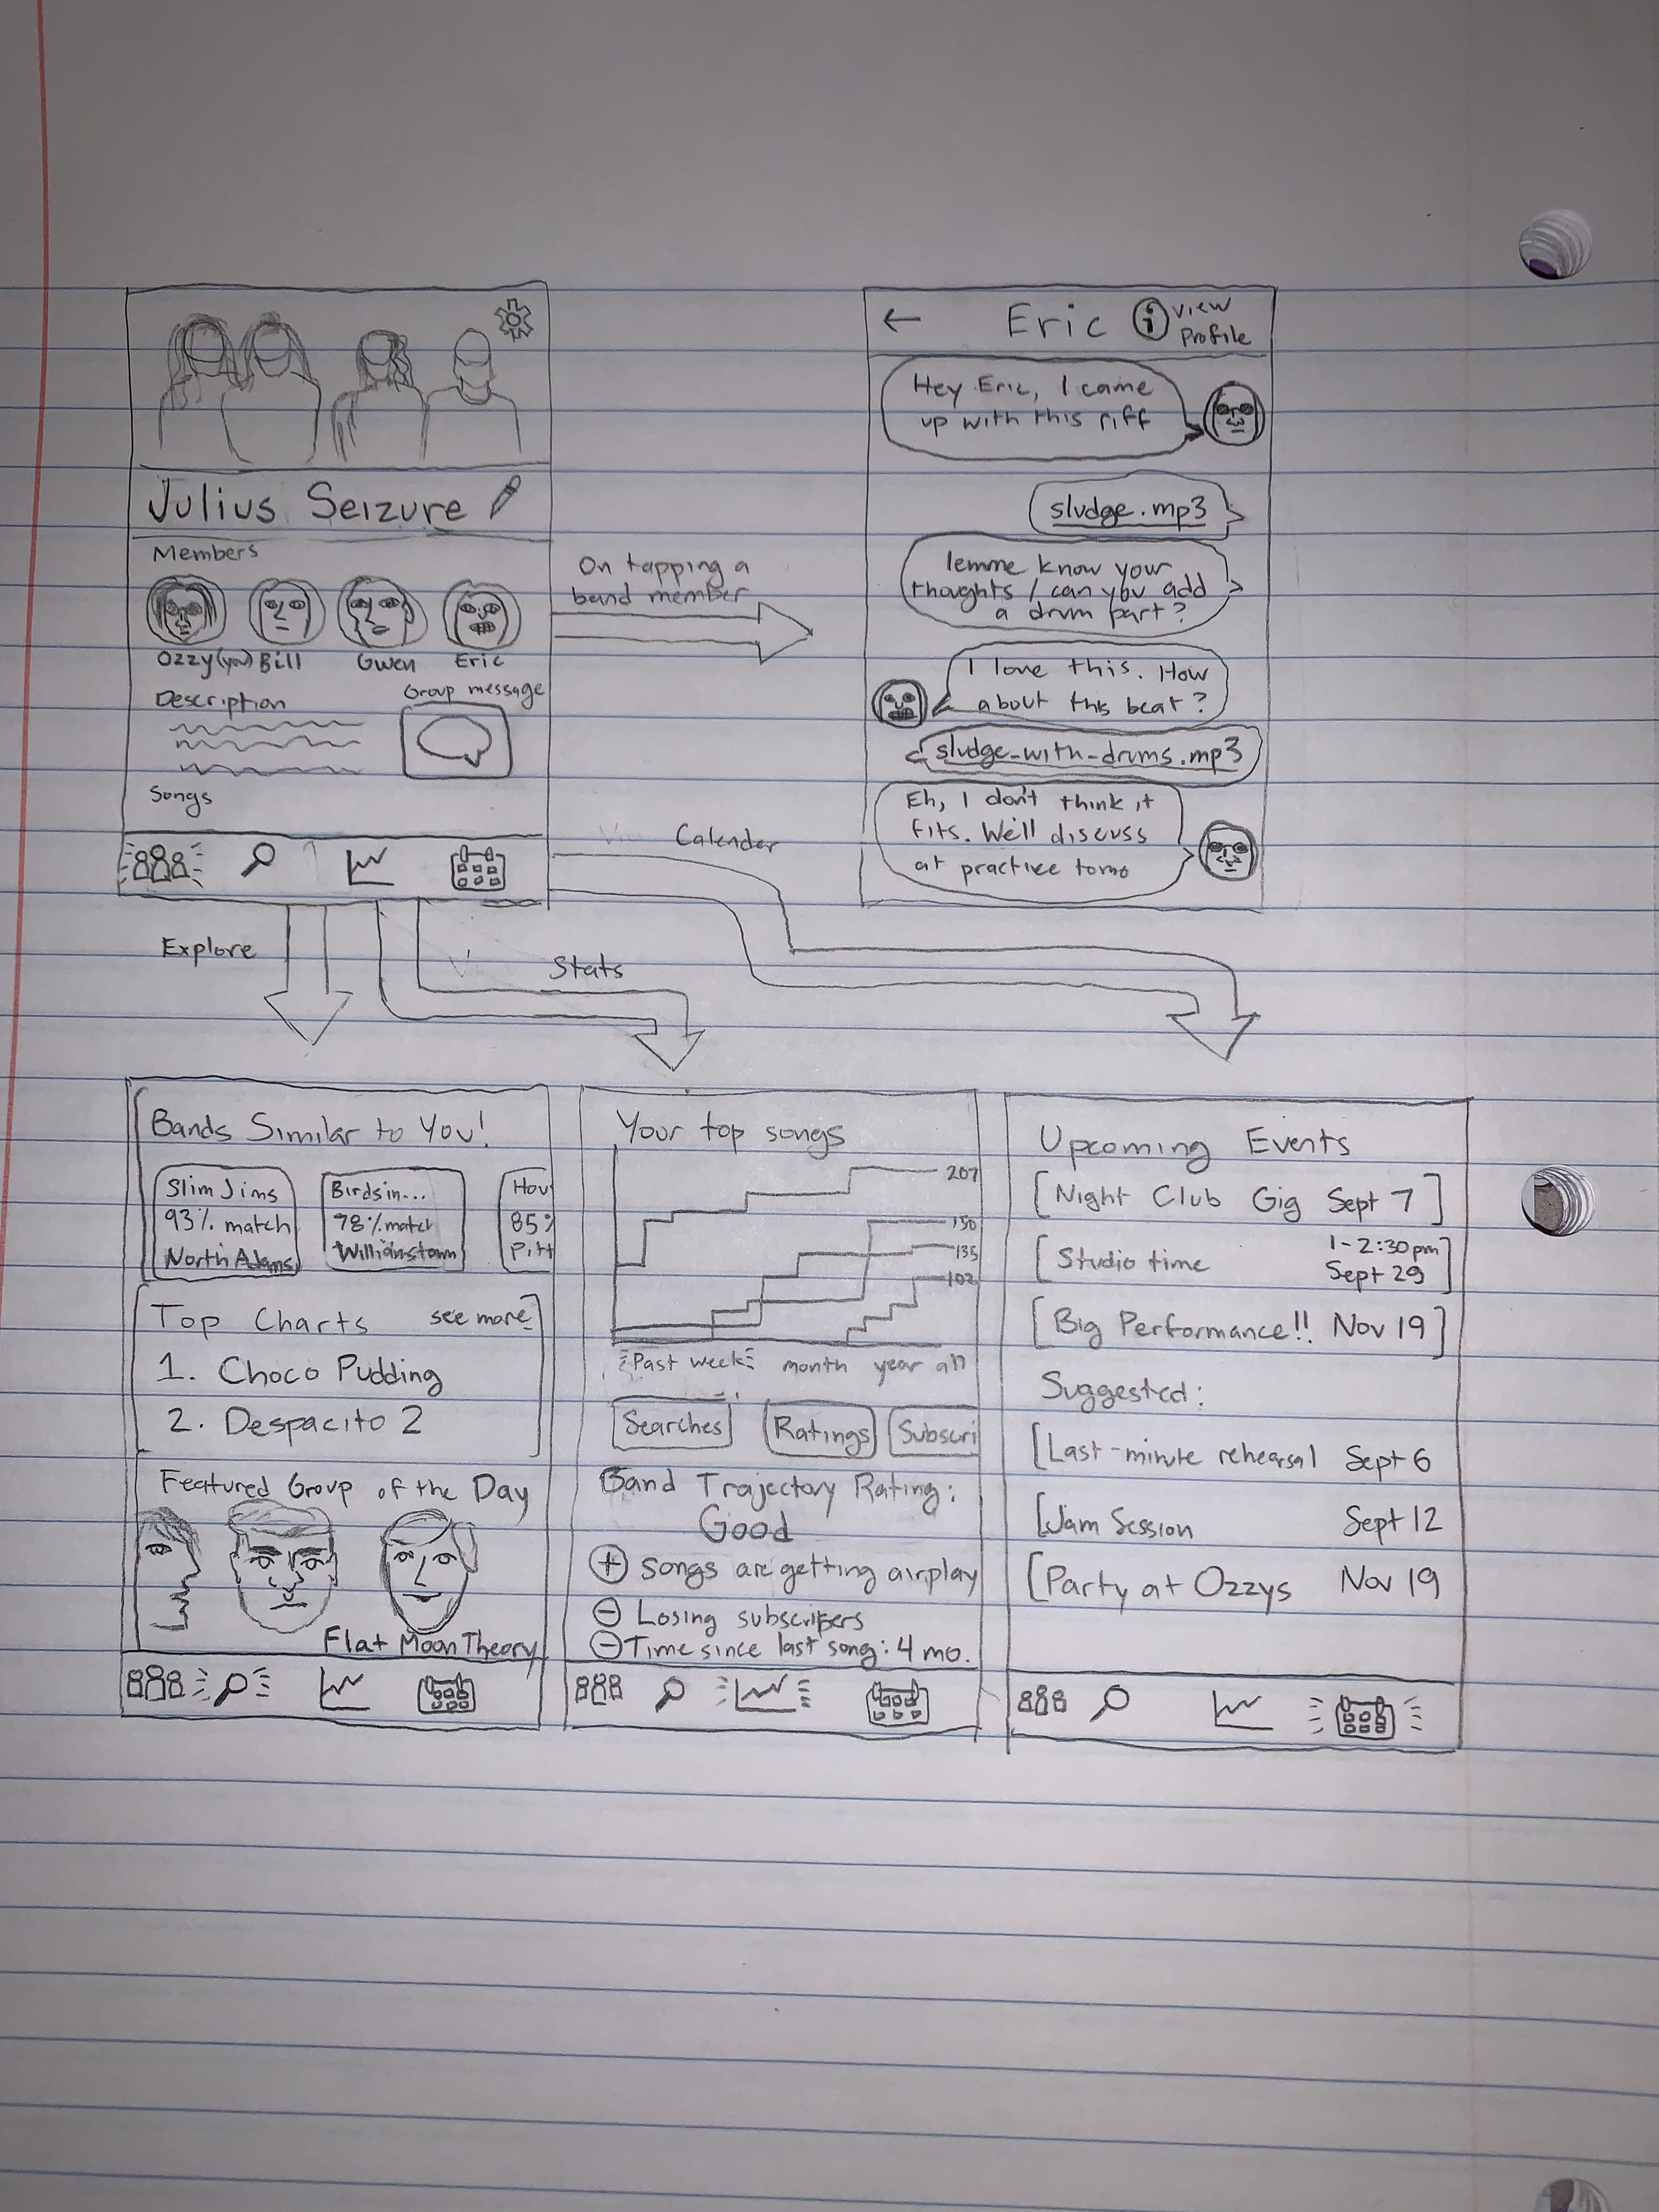 Julius Seizure
Members
Ozzy (you) Bill Gwen Eric
Description
Group message
Songs
On tapping a
band member
← Eric i View
Profile
Hey Eric, I came
up with this riff
sludge.mp3
lemme know your
thoughts / can you add
a drum part?
I love this. How
about this beat?
sludge_with_drums.mp3
Eh, I don't think it
fits. We'll discuss
at practice tomo
Calender
Explore
Stats
Bands Similar to You!
Slim Jims
93% match
North Adams
Birds in...
78% match
Williamstown
Hov
85%
Pitt
Top Charts see more
1. Choco Pudding
2. Despacito 2
Featured Group of the Day
Flat Moon Theory
Your top songs
207
150
135
102
Past week month year all
Searches Ratings Subscri
Band Trajectory Rating:
Good
+ Songs are getting airplay
- Losing subscribers
- Time since last song: 4 mo.
Upcoming Events
[Night Club Gig Sept 7]
[Studio time 1-2:30pm
Sept 29]
[Big Performance!! Nov 19]
Suggested:
[Last-minute rehearsal Sept 6
[Jam Session Sept 12
[Party at Ozzys Nov 19